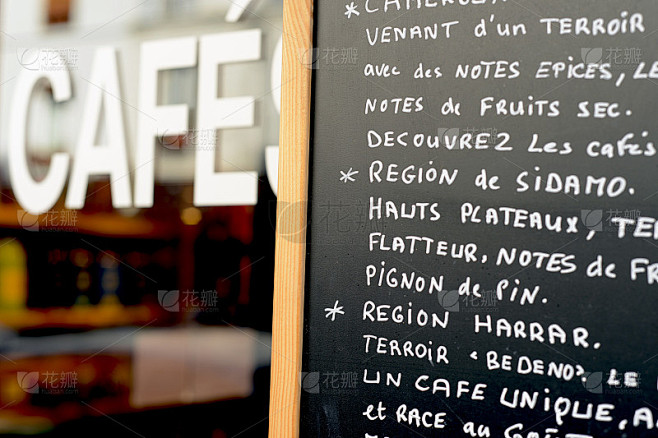 CAFÉS
* CAMEROUN
VENANT d'un TERROIR
avec des NOTES EPICES, LE
NOTES de FRUITS SEC.
DECOUVREZ Les cafés
* REGION de SIDAMO.
HAUTS PLATEAUX, TE
FLATTEUR, NOTES de FR
PIGNON de PIN.
* REGION HARRAR.
TERROIR "BEDENO", LE
UN CAFE UNIQUE, A
et RACE au
花瓣